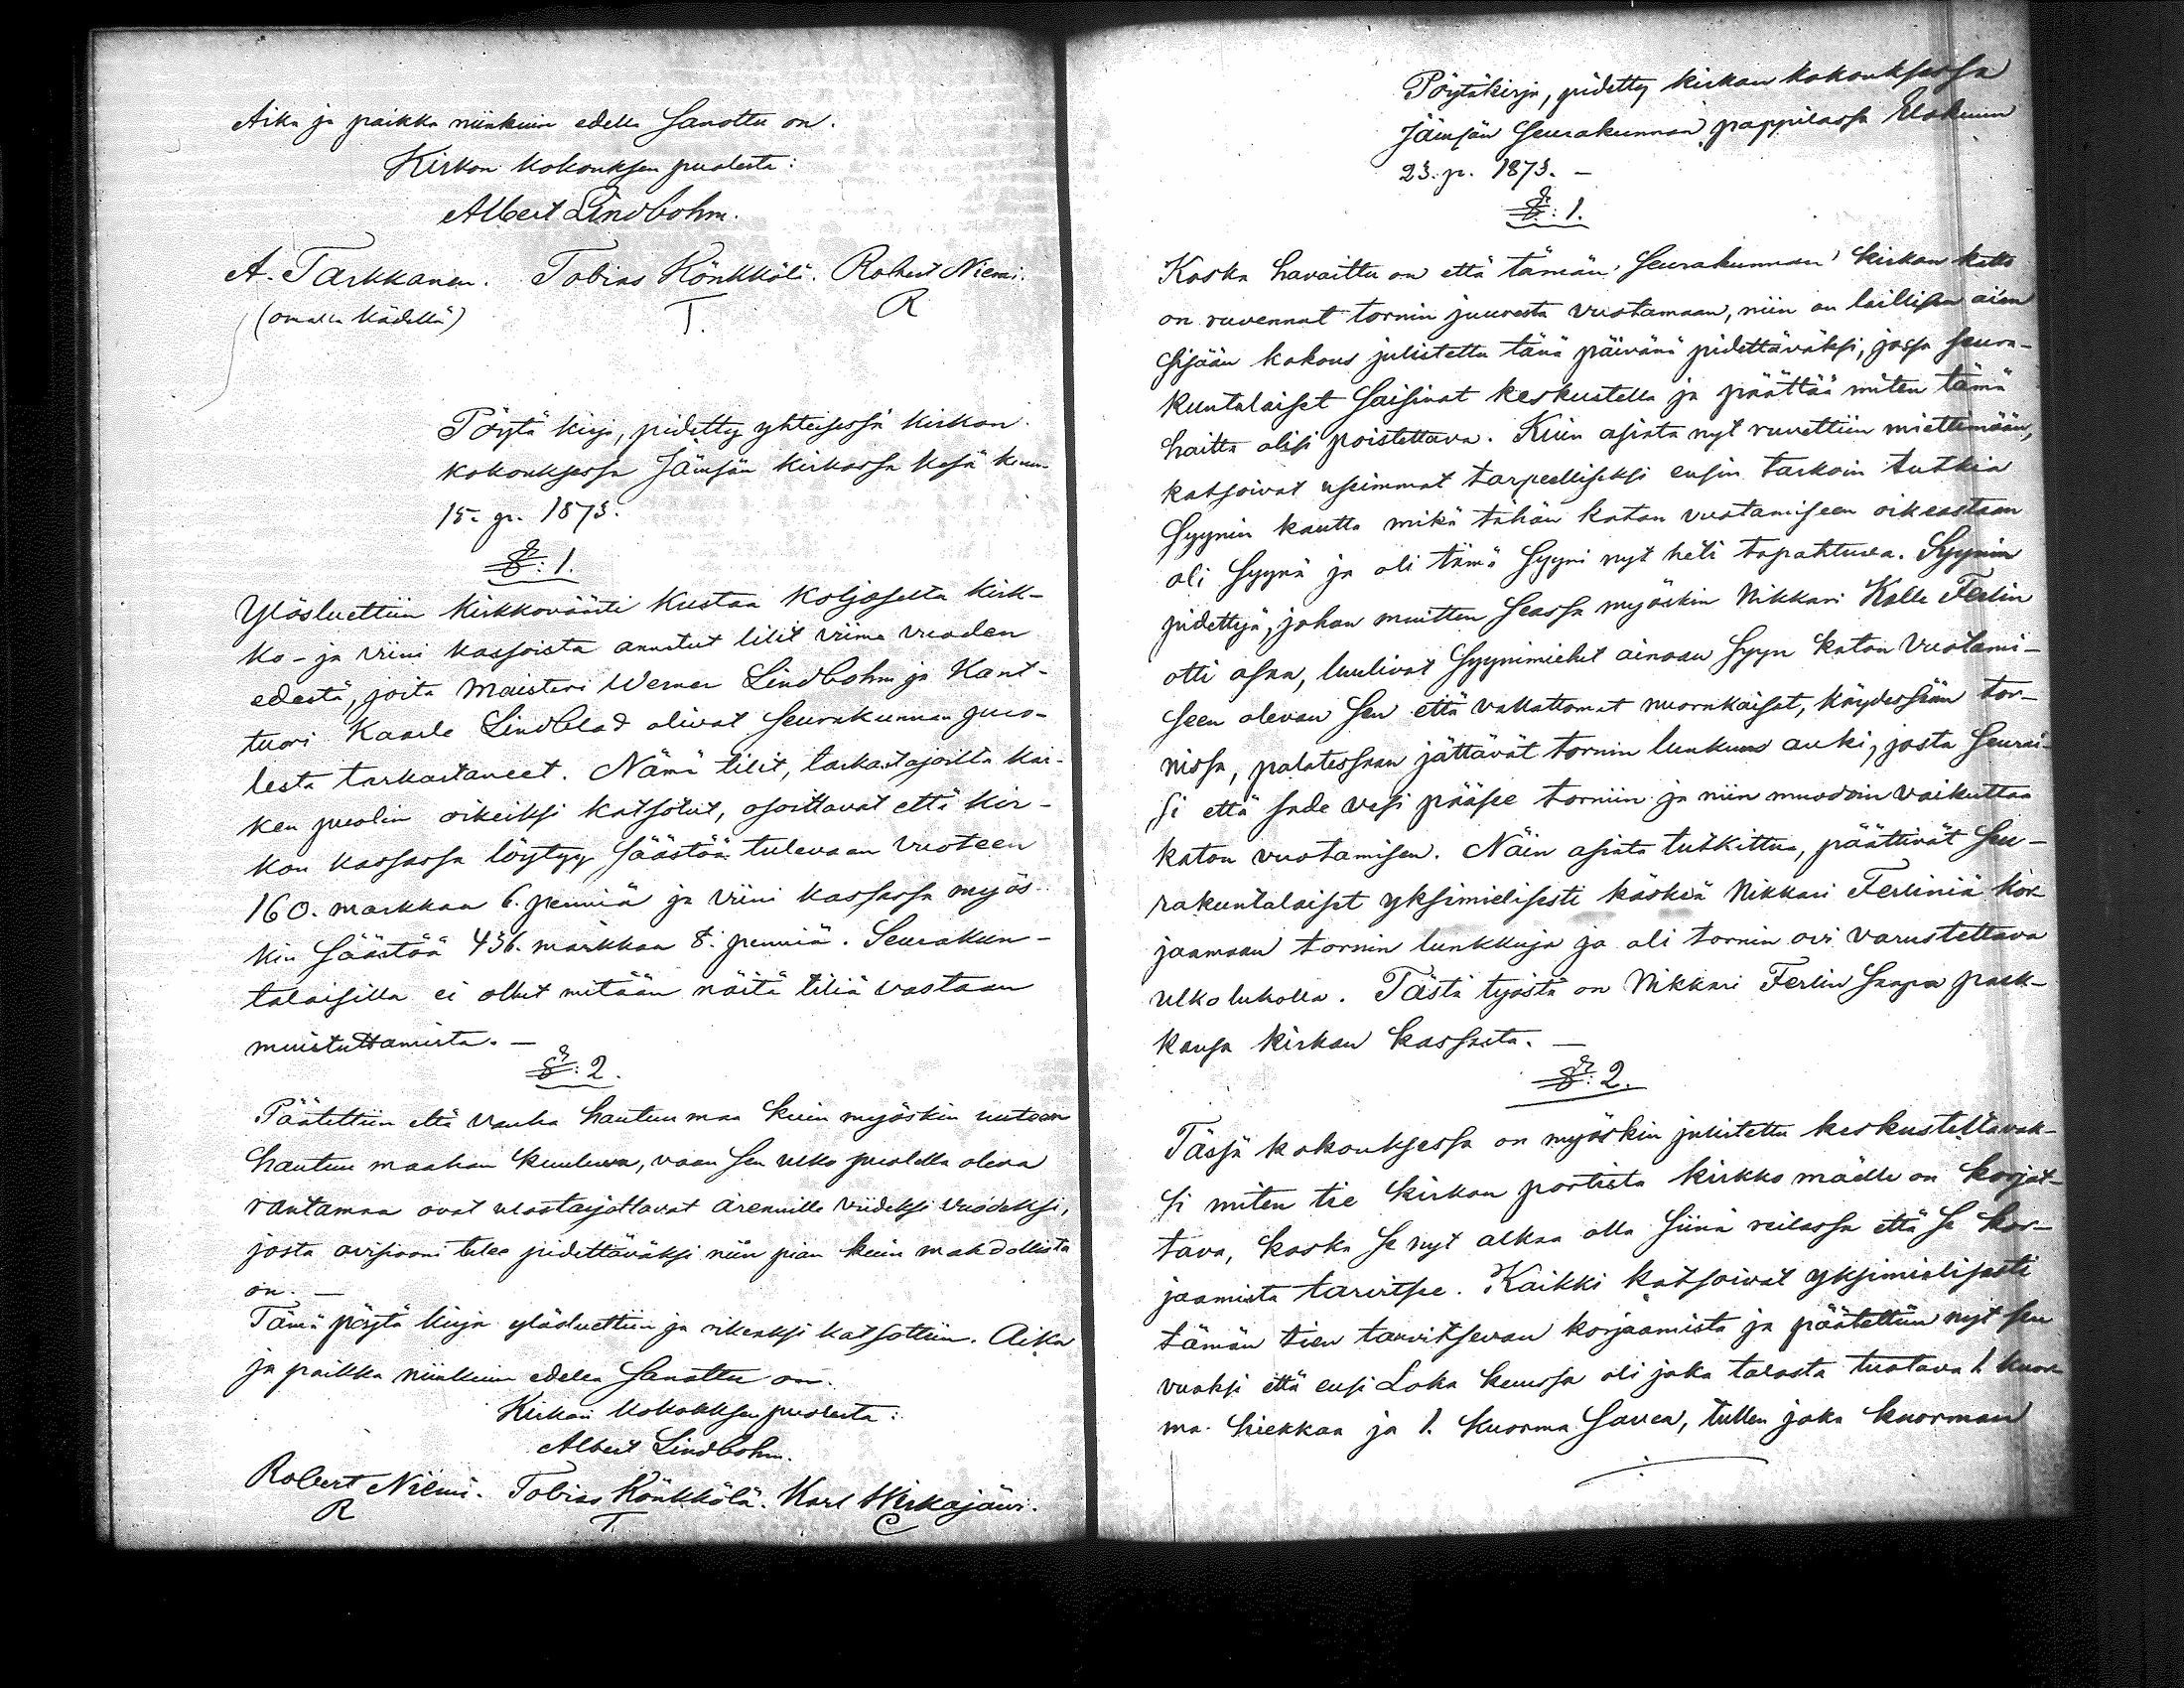 Aika ja paikka niinkuin edellä sanottu on.
Kirkon kokouksen puolesta:
Albert Lindbohm.
A. Tarkkanen. Tobias Könkkölä. Robert Niemi.
(omalla kädellä) T. R
Pöytä kirja, pidetty yhteisessä kirkon
kokouksessa Jämsän kirkossa Kesä kuun
15. p. 1873.
§: 1.
Ylösluettiin kirkkoväärti Kustaa Koljoselta kirk-
ko- ja viini kassoista annetut tilit viime vuoden
edestä, joita Maisteri Werner Lindbohm ja Kant-
tuori Kaarle Lindblad olivat seurakunnan puo-
lesta tarkastaneet. Nämä tilit, tarkastajoilta kai-
ken puolin oikeiksi katsotut, osoittavat että kir-
kon kassassa löytyy säästöä tulevaan vuoteen
160. markkaa 6. penniä ja viini kassassa myös-
kin säästöä 436. markkaa 8. penniä. Seurakun-
talaisilla ei ollut mitään näitä tiliä vastaan
muistuttamista. —
§: 2.
Päätettiin että vanha hautuu maa kuin myöskin uuteen
hautuu maahan kuuluva, vaan sen ulko puolella oleva
rantamaa ovat ulostarjottavat arennille viideksi vuodeksi,
josta avisiooni tulee pidettäväksi niin pian kuin mahdollista
on. —
Tämä pöytä kirja ylösluettiin ja oikeaksi katsottiin. Aika
ja paikka niinkuin edellä sanottu on.
Kirkon kokouksen puolesta:
Albert Lindbohm.
Robert Niemi. Tobias Könkkölä. Karl Wirkajärvi.
R T. C
Pöytäkirja, pidetty kirkon kokouksessa
Jämsän seurakunnan pappilassa Elokuun
23. p. 1873. —
§: 1.
Koska havaittu on että tämän seurakunnan kirkon katto
on ruvennut tornin juuresta vuotamaan, niin on laillisen aian
sisään kokous julistettu tänä päivänä pidettäväksi, jossa seura-
kuntalaiset saisivat keskustella ja päättää miten tämä
haitta olisi poistettava. Kuin asiata nyt ruvettiin miettimään,
katsoivat useimmat tarpeelliseksi ensin tarkoin tutkia
syynin kautta mikä tähän katon vuotamiseen oikeastaan
oli syynä ja oli tämä syyni nyt heti tapahtuva. Syynin
pidettyä, johon muitten seassa myöskin Nikkari Kalle Ferlin
otti osaa, luulivat syynimiehet ainoan syyn katon vuotami-
seen olevan sen että vallattomat nuorukaiset, käydessään tor-
nissa, palatessaan jättävät tornin luukun auki, josta seurai-
si että sade vesi pääsee torniin ja niin muodoin vaikuttaa
katon vuotamisen. Näin asiata tutkittua, päättivät seu-
rakuntalaiset yksimielisesti käskeä Nikkari Ferliniä kor-
jaamaan tornin luukkuja ja oli tornin ovi varustettava
ulko lukolla. Tästä työstä on Nikkari Ferlin saapa palk-
kansa kirkon kassasta. —
§: 2.
Tässä kokouksessa on myöskin julistettu keskusteltavak-
si miten tie kirkon portista kirkko mäelle on korjat-
tava, koska se nyt alkaa olla siinä reilassa että se kor-
jaamista tarvitsee. Kaikki katsoivat yksimielisesti
tämän tien tarvitsevan korjaamista ja päätettiin nyt sen
vuoksi että ensi Loka kuussa oli joka talosta tuotava 1 kuor-
ma hiekkaa ja 1. kuorma savea, tullen joka kuorman